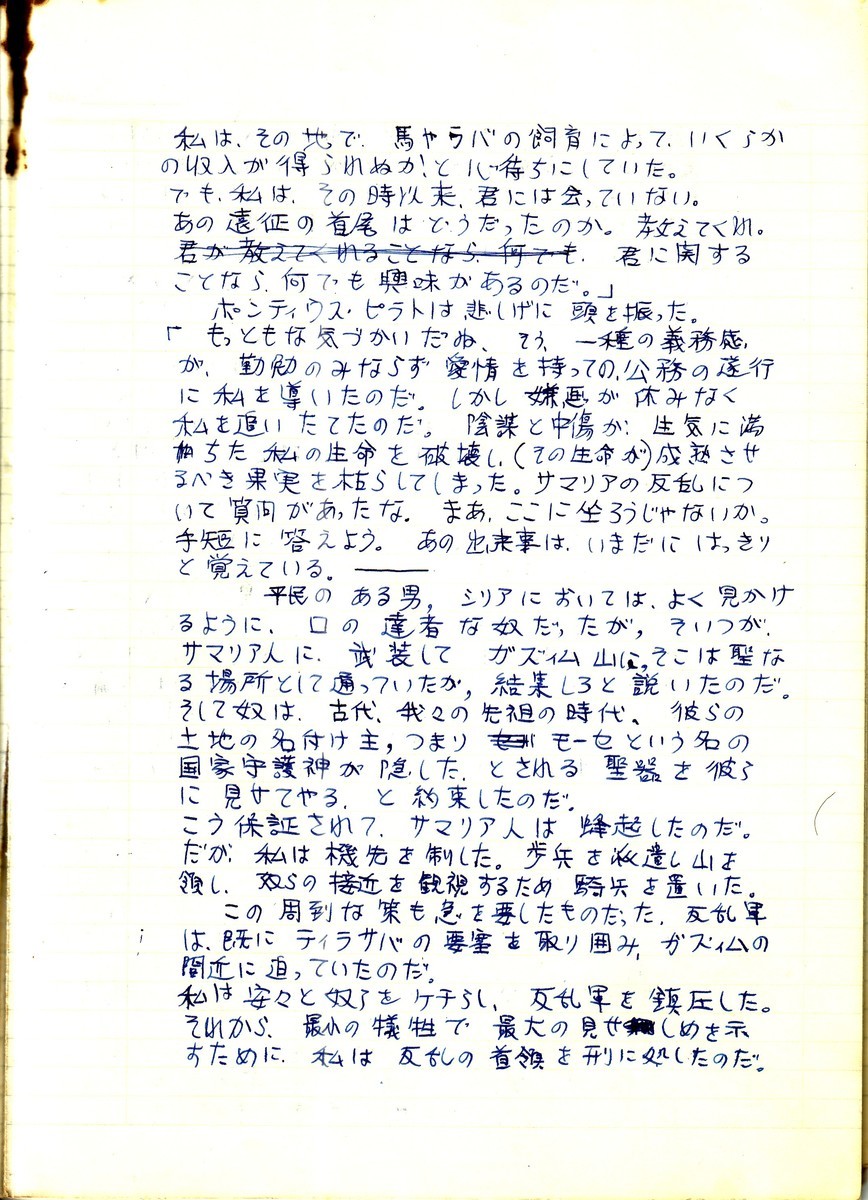 私は、その地で、馬やラバの飼育によって、いくらか
の収入が得られぬか、と心待ちにしていた。
でも、私は、その時以来、君には会っていない。
あの遠征の首尾はどうだったのか。教えてくれ。
君が教えてくれることなら、何でも、君に関する
ことなら、何でも興味があるのだ。」
ポンティウス・ピラトは悲しげに頭を振った。
「もっともな気づかいだね、そう、一種の義務感
が、勤勉のみならず愛情を持っての公務の遂行
に私を導いたのだ。しかし嫌悪が休みなく
私を追いたてたのだ。陰謀と中傷が、生気に満
ちた私の生命を破壊し、(その生命が)成熟させ
るべき果実を枯らしてしまった。サマリアの反乱につ
いて質問があったな。まあ、ここに坐ろうじゃないか。
手短に答えよう。あの出来事は、いまだにはっきり
と覚えている。――
平民のある男,シリアにおいては、よく見かけ
るように、口の達者な奴だったが,そいつが、
サマリア人に、武装してガズィム山に,そこは聖な
る場所として通っていたが,結集しろと説いたのだ。
そして奴は、古代、我々の先祖の時代、彼らの
土地の名付け主,つまりモーセという名の
国家守護神が隠した、とされる聖器を彼ら
に見せてやる、と約束したのだ。
こう保証されて、サマリア人は蜂起したのだ。
だが、私は機先を制した。歩兵を派遣し山を
領し、奴らの接近を観視するため騎兵を置いた。
この周到な策も急を要したものだった、反乱軍
は、既にティラサバの要塞を取り囲み,ガズィムの
間近に迫っていたのだ。
私は安々と奴らをケチらし、反乱軍を鎮圧した。
それから、最小の犠牲で最大の見せしめを示
すために、私は反乱の首領を刑に処したのだ。